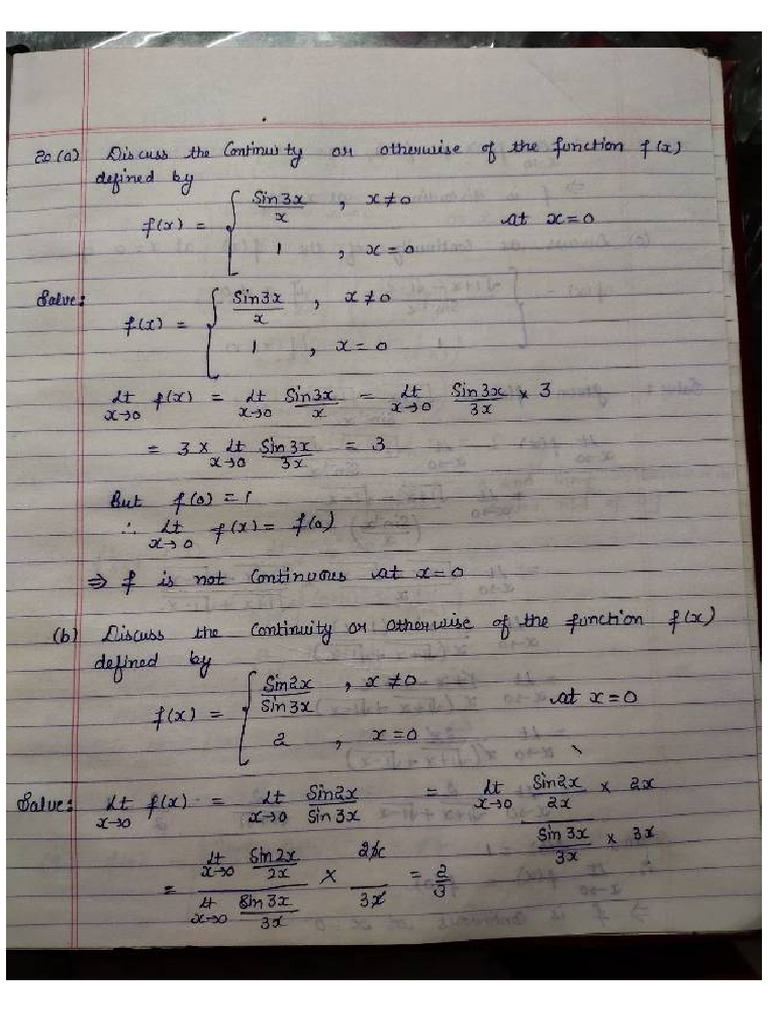 20.(a) Discuss the Continuity or otherwise of the function f(x)
defined by
f(x) = { Sin3x/x , x≠0 at x=0
1 , x=0
Solve: f(x) = { Sin3x/x , x≠0
1 , x=0
Lt x→0 f(x) = Lt x→0 Sin3x/x = Lt x→0 Sin3x/3x × 3
= 3 × Lt x→0 Sin3x/3x = 3
But f(0) = 1
∴ Lt x→0 f(x) = f(0)
⇒ f is not continuous at x=0
(b) Discuss the Continuity or otherwise of the function f(x)
defined by
f(x) = { Sin2x/Sin3x , x≠0 at x=0
2 , x=0
Solve: Lt x→0 f(x) = Lt x→0 Sin2x/Sin3x = Lt x→0 (Sin2x/2x × 2x)/(Sin3x/3x × 3x)
= (Lt x→0 Sin2x/2x)/(Lt x→0 Sin3x/3x) × 2x/3x = 2/3